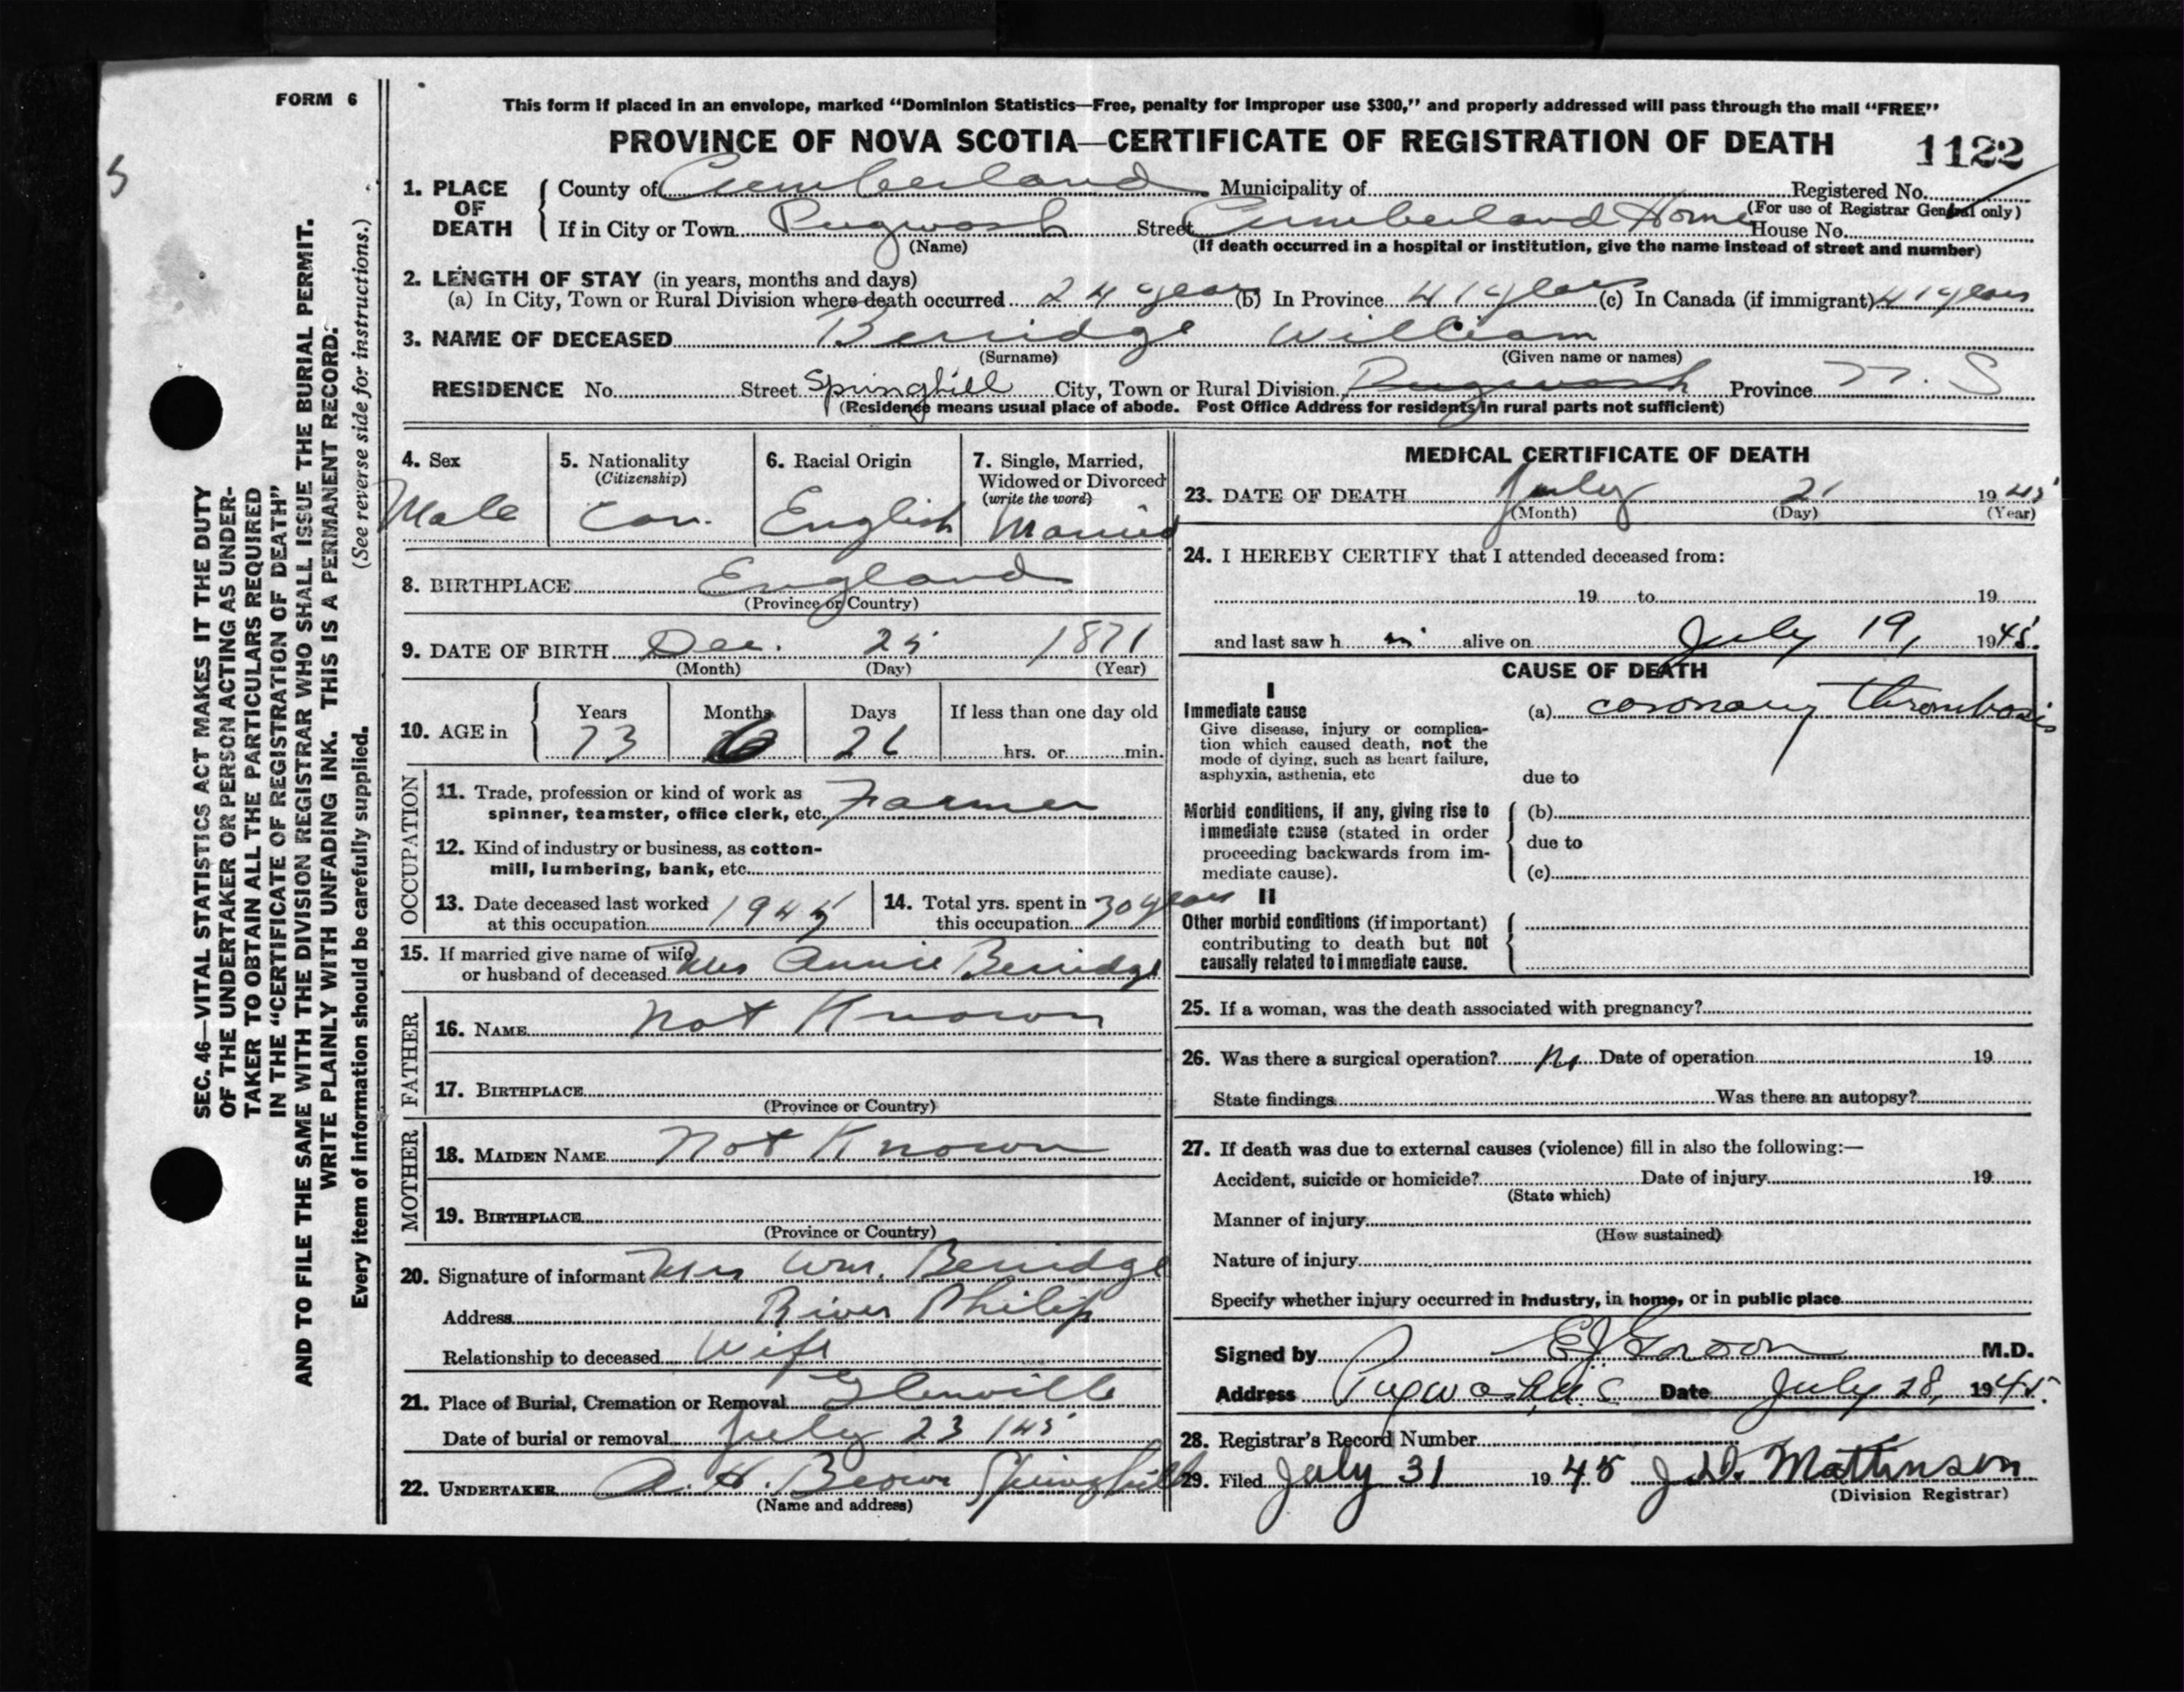 FORM 6
5
SEC. 46—VITAL STATISTICS ACT MAKES IT THE DUTY
OF THE UNDERTAKER OR PERSON ACTING AS UNDER-
TAKER TO OBTAIN ALL THE PARTICULARS REQUIRED
IN THE "CERTIFICATE OF REGISTRATION OF DEATH"
AND TO FILE THE SAME WITH THE DIVISION REGISTRAR WHO SHALL ISSUE THE BURIAL PERMIT.
WRITE PLAINLY WITH UNFADING INK. THIS IS A PERMANENT RECORD.
Every item of information should be carefully supplied. (See reverse side for instructions.)
This form if placed in an envelope, marked "Dominion Statistics—Free, penalty for improper use $300," and properly addressed will pass through the mail "FREE"
PROVINCE OF NOVA SCOTIA—CERTIFICATE OF REGISTRATION OF DEATH 1122
1. PLACE OF DEATH
County of Cumberland Municipality of Registered No.
(For use of Registrar General only)
If in City or Town Pugwash Street Cumberland Home House No.
(Name) (If death occurred in a hospital or institution, give the name instead of street and number)
2. LENGTH OF STAY (in years, months and days)
(a) In City, Town or Rural Division where death occurred 24 years (b) In Province 41 years (c) In Canada (if immigrant) 41 years
3. NAME OF DECEASED Berridge William
(Surname) (Given name or names)
RESIDENCE No. Street Springhill City, Town or Rural Division Pugwash Province N. S
(Residence means usual place of abode. Post Office Address for residents in rural parts not sufficient)
4. Sex
Male
5. Nationality
(Citizenship)
Can.
6. Racial Origin
English
7. Single, Married,
Widowed or Divorced
(write the word)
Married
8. BIRTHPLACE England
(Province or Country)
9. DATE OF BIRTH Dec. 25 1871
(Month) (Day) (Year)
10. AGE in
Years Months Days If less than one day old
73 6 26 hrs. or min.
OCCUPATION
11. Trade, profession or kind of work as
spinner, teamster, office clerk, etc. Farmer
12. Kind of industry or business, as cotton-
mill, lumbering, bank, etc.
13. Date deceased last worked
at this occupation 1945
14. Total yrs. spent in
this occupation 30 years
15. If married give name of wife
or husband of deceased Mrs Annie Berridge
FATHER
16. NAME Not Known
17. BIRTHPLACE
(Province or Country)
MOTHER
18. MAIDEN NAME Not Known
19. BIRTHPLACE
(Province or Country)
20. Signature of informant Mrs Wm. Berridge
Address River Philip
Relationship to deceased Wife
21. Place of Burial, Cremation or Removal Glenville
Date of burial or removal July 23 / 45
22. UNDERTAKER A. H. Brown Springhill
(Name and address)
MEDICAL CERTIFICATE OF DEATH
23. DATE OF DEATH July 21 1945
(Month) (Day) (Year)
24. I HEREBY CERTIFY that I attended deceased from:
19 to 19
and last saw h im alive on July 19, 1945.
CAUSE OF DEATH
I
Immediate cause
Give disease, injury or complica-
tion which caused death, not the
mode of dying, such as heart failure,
asphyxia, asthenia, etc
(a) coronary thrombosis
due to
Morbid conditions, if any, giving rise to
immediate cause (stated in order
proceeding backwards from im-
mediate cause).
(b)
due to
(c)
II
Other morbid conditions (if important)
contributing to death but not
causally related to immediate cause.
25. If a woman, was the death associated with pregnancy?
26. Was there a surgical operation? No Date of operation 19
State findings Was there an autopsy?
27. If death was due to external causes (violence) fill in also the following:—
Accident, suicide or homicide? Date of injury 19
(State which)
Manner of injury
(How sustained)
Nature of injury
Specify whether injury occurred in industry, in home, or in public place
Signed by M.D.
Address Pugwash, N. S. Date July 28, 1945.
28. Registrar's Record Number
29. Filed July 31 1945 J.D. Mattinson
(Division Registrar)